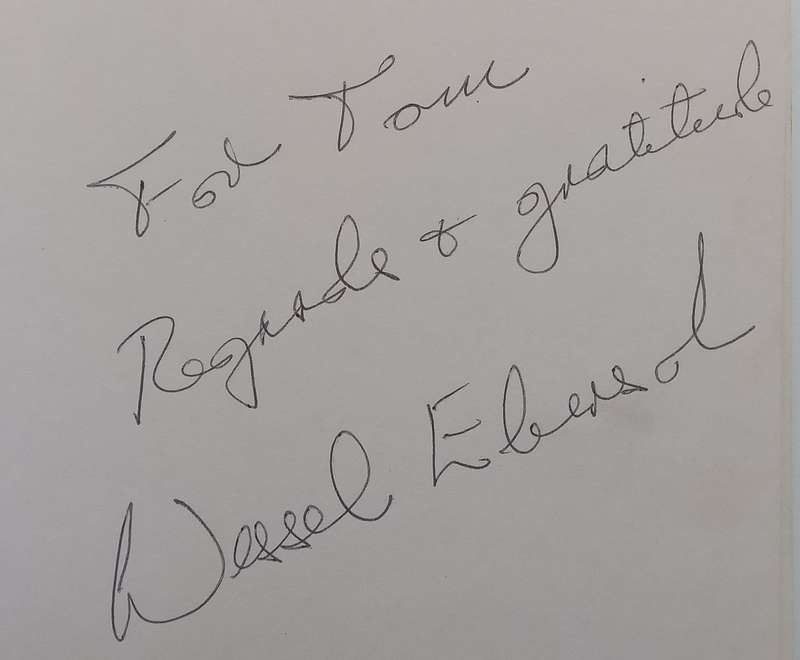 For Tom
Regards & gratitude
Wessel Ebersohn